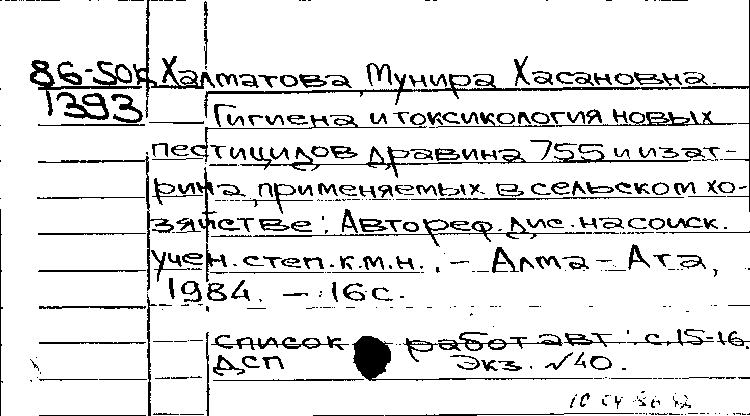 86-50к Халматова Мунира Хасановна.
1393 Гигиена и токсикология новых
пестицидов дравина 755 и изат-
рина, применяемых в сельском хо-
зяйстве: Автореф. дис. на соиск.
учен. степ. к.м.н. - Алма-Ата,
1984. - 16с.
список работ авт: с. 15-16.
ДСП Экз. №40.